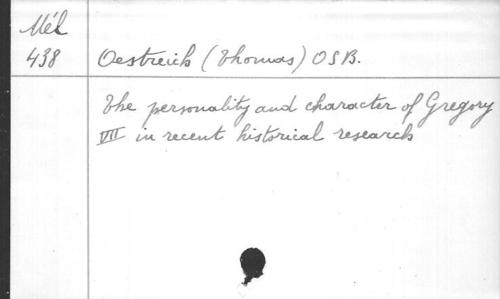 Mél
438
Oestreich (Thomas) OSB.
The personality and character of Gregory
VII in recent historical research